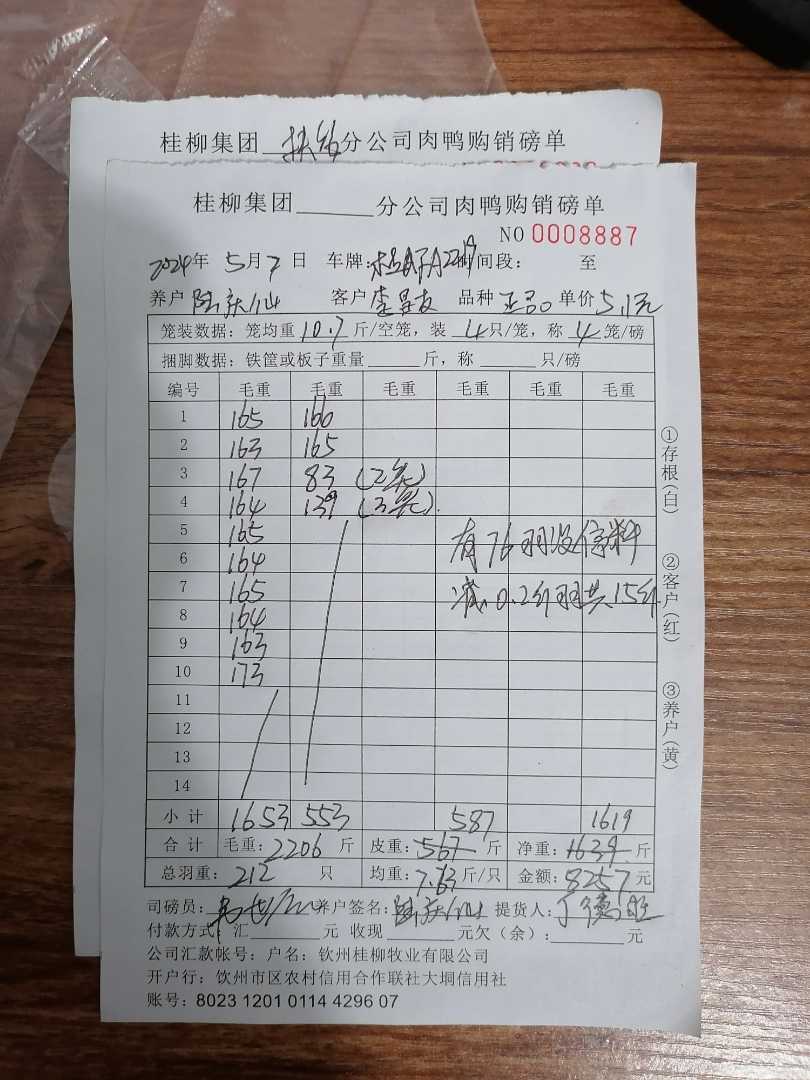 桂柳集团 扶绥 分公司肉鸭购销磅单
桂柳集团______分公司肉鸭购销磅单
NO 0008887
2024年 5月 7日 车牌: 时间段: 至
养户 陆庆仙 客户 李昌友 品种 正品 单价 5.1元
笼装数据: 笼均重 10.7 斤/空笼, 装 4 只/笼, 称 4 笼/磅
捆脚数据: 铁筐或板子重量______斤, 称______只/磅
编号 毛重 毛重 毛重 毛重 毛重 毛重
1 165 166
2 163 165
3 167 83 (2笼)
4 164 139 (3笼)
5 165 有76羽没停料
6 164
7 165 减0.2斤/羽共15斤
8 164
9 163
10 173
11
12
13
14
小计 1653 553 587 1619
合计 毛重: 2206 斤 皮重: 567 斤 净重: 1639 斤
总羽重: 212 只 均重: 7.63 斤/只 金额: 8257 元
司磅员: 养户签名: 陆庆仙 提货人: 丁德胜
付款方式: 汇______元 收现______元欠(余):______元
公司汇款帐号: 户名: 钦州桂柳牧业有限公司
开户行: 钦州市区农村信用合作联社大垌信用社
账号: 8023 1201 0114 4296 07
①存根(白)
②客户(红)
③养户(黄)